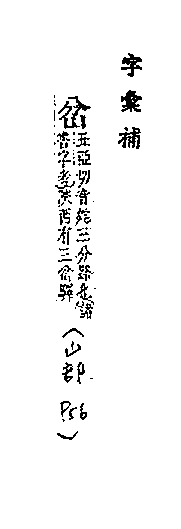 字彙補
岔
丑亞切音姹三分路也諸
書字考陝西有三岔驛
(山部 P56)